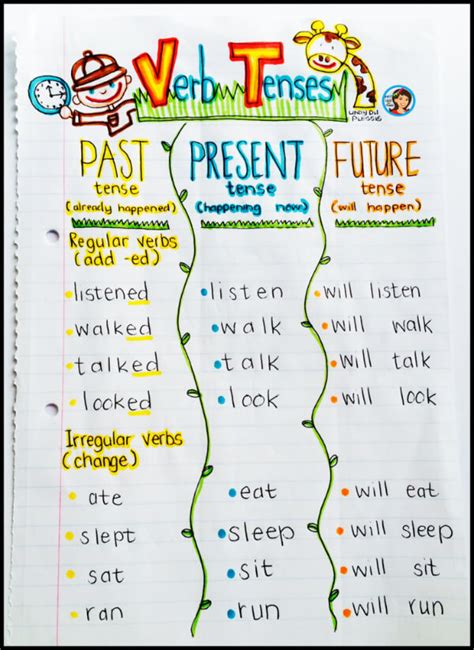 Verb Tenses
PAST PRESENT FUTURE
tense tense tense
(already happened) (happening now) (will happen)
Regular verbs
(add -ed)
listened listen will listen
walked walk will walk
talked talk will talk
looked look will look
Irregular verbs
(change)
ate eat will eat
slept sleep will sleep
sat sit will sit
ran run will run